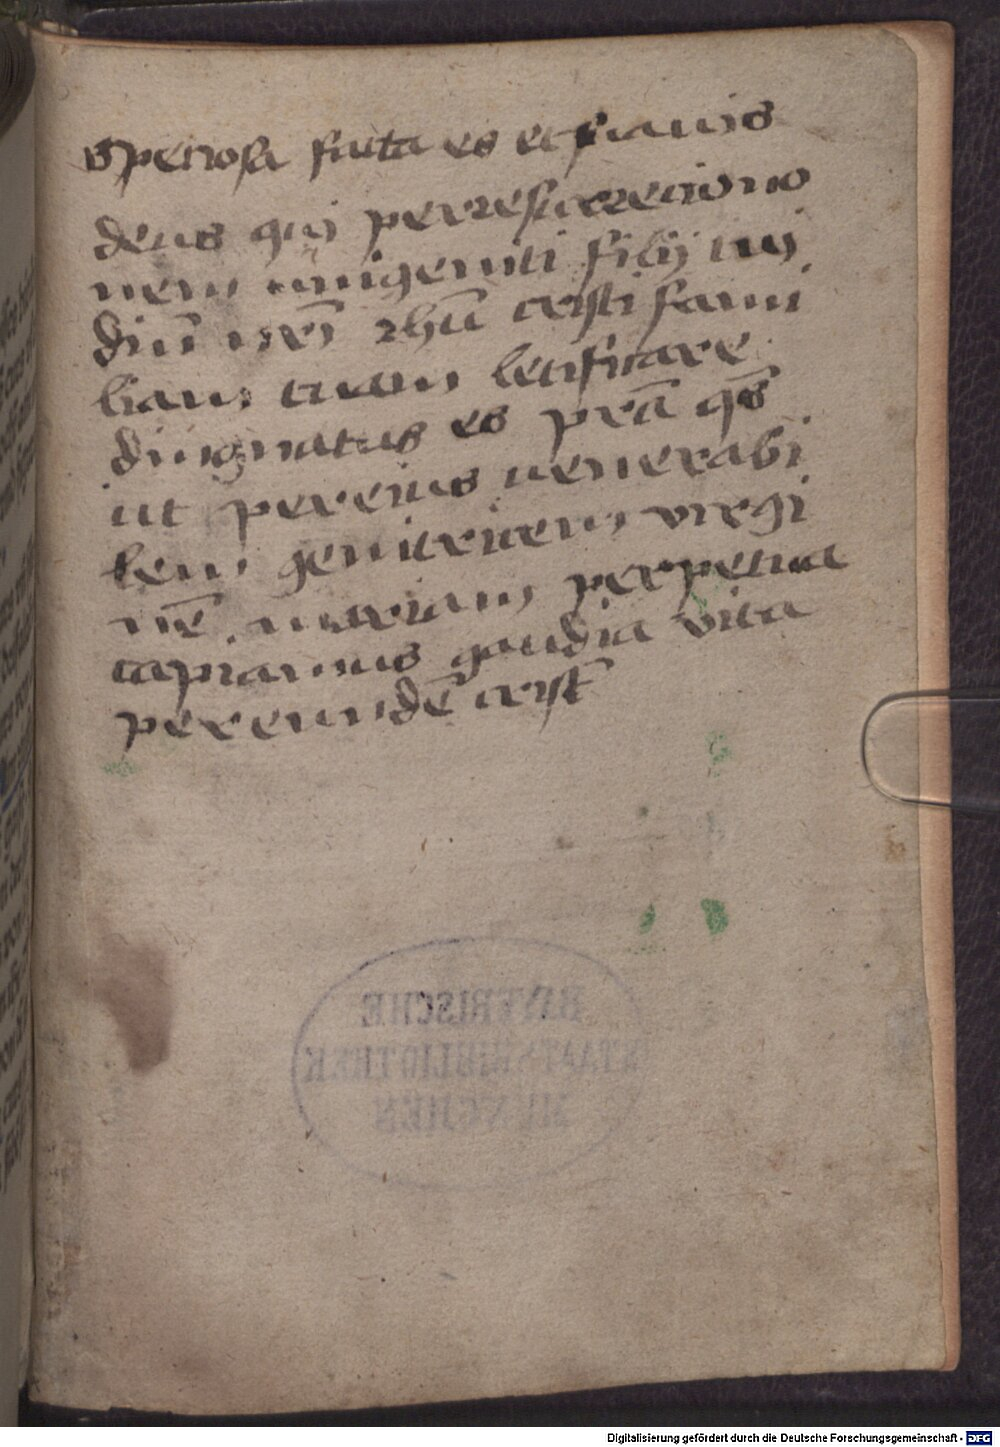 Speciosa facta es et suauis
deus qui per resurrectiono
nem unigeniti filij tuj
diui nri ihu cristi fami
liam tuam letificare
dingnatus es prẽa qs
ut per eius uenerabi
lem genitricem virgi
nẽ mariam perpetua
capiamus gaudia vita
per eundẽ crist
BAYERISCHE
STAATSBIBLIOTHEK
MÜNCHEN
Digitalisierung gefördert durch die Deutsche Forschungsgemeinschaft - DFG